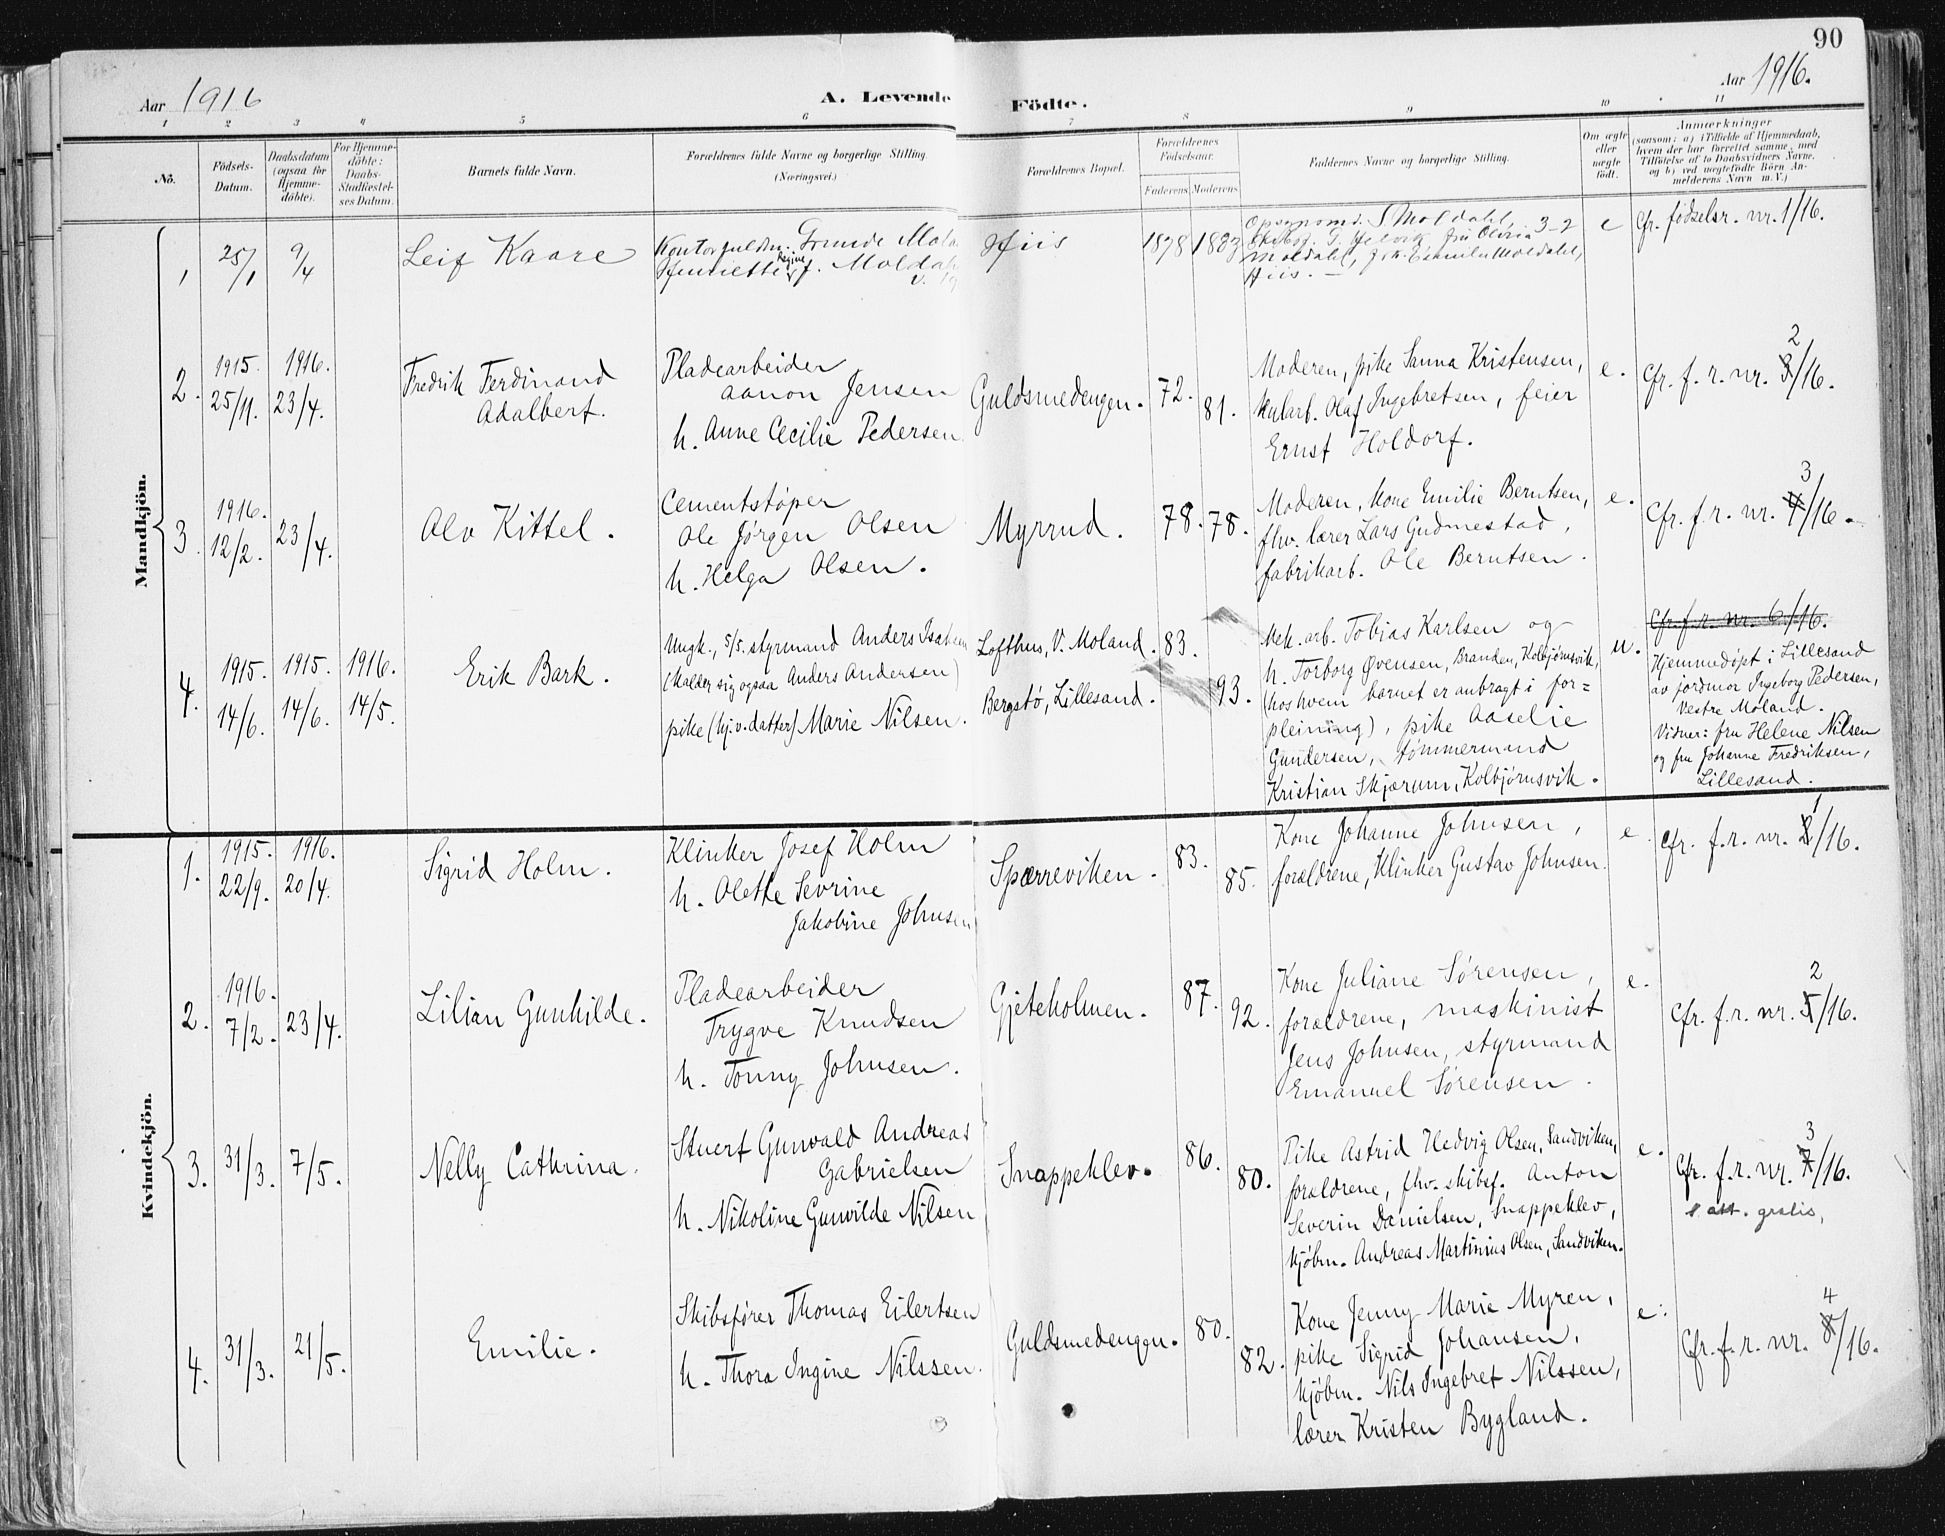 90
Aar 1916
A. Levende Födte.
Aar 1916.
1 2 3 4 5 6 7 8 9 10 11
No.
Födsels-Datum.
Daabsdatum (ogsaa for Hjemme-döbte).
For Hjemme-döbte: Daabs-Stadfæstel-ses Datum.
Barnets fulde Navn.
Forældrenes fulde Navne og borgerlige Stilling. (Næringsvei.)
Forældrenes Bopæl.
Forældrenes Födselsaar.
Faderens Moderens
Faddernes Navne og borgerlige Stilling.
Om ægte eller uægte födt.
Anmærkninger
(saasom: a) i Tilfælde af Hjemmedaab, hvem der har forrettet samme, med Tilföielse af to Daabsvidners Navne. og b) ved uægtefödte Börn An-melderens Navn m. V.)
Mandkjön.
1 25/1 9/4
Leif Kaare
Gunde
Henriette Regine f. Moldahl
Hiis
1878 1883
S. Moldahl, 3-2
fru Olivia
Moldahl,
Hiis. —
e
Cfr. födselsr. nr. 1/16.
2. 1915. 25/11. 1916. 23/4.
Fredrik Ferdinand
Adalbert.
Pladearbeider
Aanon Jensen
h. Anne Cecilie Pedersen
Guldsmedengen.
72. 81.
Moderen, pike Sanna Kristensen,
kularb. Olaf Ingebretsen, feier
Ernst Holdorf.
e.
Cfr. f. r. nr. 2/16.
3. 1916. 12/2. 23/4.
Alv Kittel.
Cementstøper
Ole Jørgen Olsen
h. Helga Olsen.
Myrrud.
78. 78.
Moderen, kone Emilie Berntsen,
fhv. lærer Lars Gudmestad,
fabrikarb. Ole Berntsen.
e.
Cfr. f. r. nr. 3/16.
4. 1915. 14/6. 1915. 14/6. 1916. 14/5.
Erik Bark.
Ungk., 5/5. styrmand Anders Isaksen
(kalder sig ogsaa Anders Andersen)
pike (hj.v. datter) Marie Nilsen.
Lofthus, V. Moland.
Bergstø, Lillesand.
83. 93.
Mek. arb. Tobias Karlsen og
h. Torborg Øvensen, Branden, Kolbjørnsvik,
(hos hvem barnet er anbragt i for=
pleining), pike Aaselie
Gundersen, tømmermand
Kristian Skjærum, Kolbjørnsvik.
u.
Cfr. f. r. nr. 6/16.
Hjemmedøpt i Lillesand
av jordmor Ingeborg Pedersen,
Vestre Moland.
Vidner: fru Helene Nilsen
og fru Johanne Fredriksen,
Lillesand.
Kvindekjön.
1. 1915. 22/9. 1916. 20/4.
Sigrid Holm.
Klinker Josef Holm
h. Olette Sevrine
Jakobine Johnsen
Spærreviken.
83. 85.
Kone Johanne Johnsen,
forældrene, Klinker Gustav Johnsen.
e.
Cfr. f. r. nr. 1/16.
2. 1916. 7/2. 23/4.
Lilian Gunhilde.
Pladearbeider
Trygve Knudsen
h. Tonny Johnsen.
Gjeteholmen.
87. 92.
Kone Juliane Sørensen,
forældrene, maskinist
Jens Johnsen, styrmand
Emanuel Sørensen.
e.
Cfr. f. r. nr. 2/16.
3. 31/3. 7/5.
Nelly Cathrina.
Stuert Gunvald Andreas
Gabrielsen
h. Nikoline Gunvilde Nilsen
Snappeklev.
86. 80.
Pike Astrid Hedvig Olsen, Sandviken,
forældrene, fhv. skibsf. Anton
Severin Danielsen, Snappeklev,
kjøbm. Andreas Martinius Olsen, Sandviken.
e.
Cfr. f. r. nr. 3/16.
1 att. gratis.
4. 31/3. 21/5.
Emilie.
Skibsfører Thomas Eilertsen
h. Thora Ingine Nilssen.
Guldsmedengen.
80. 82.
Kone Jenny Marie Myren,
pike Sigrid Johansen,
kjøbm. Nils Ingebret Nilssen,
lærer Kristen Bygland.
e.
Cfr. f. r. nr. 4/16.